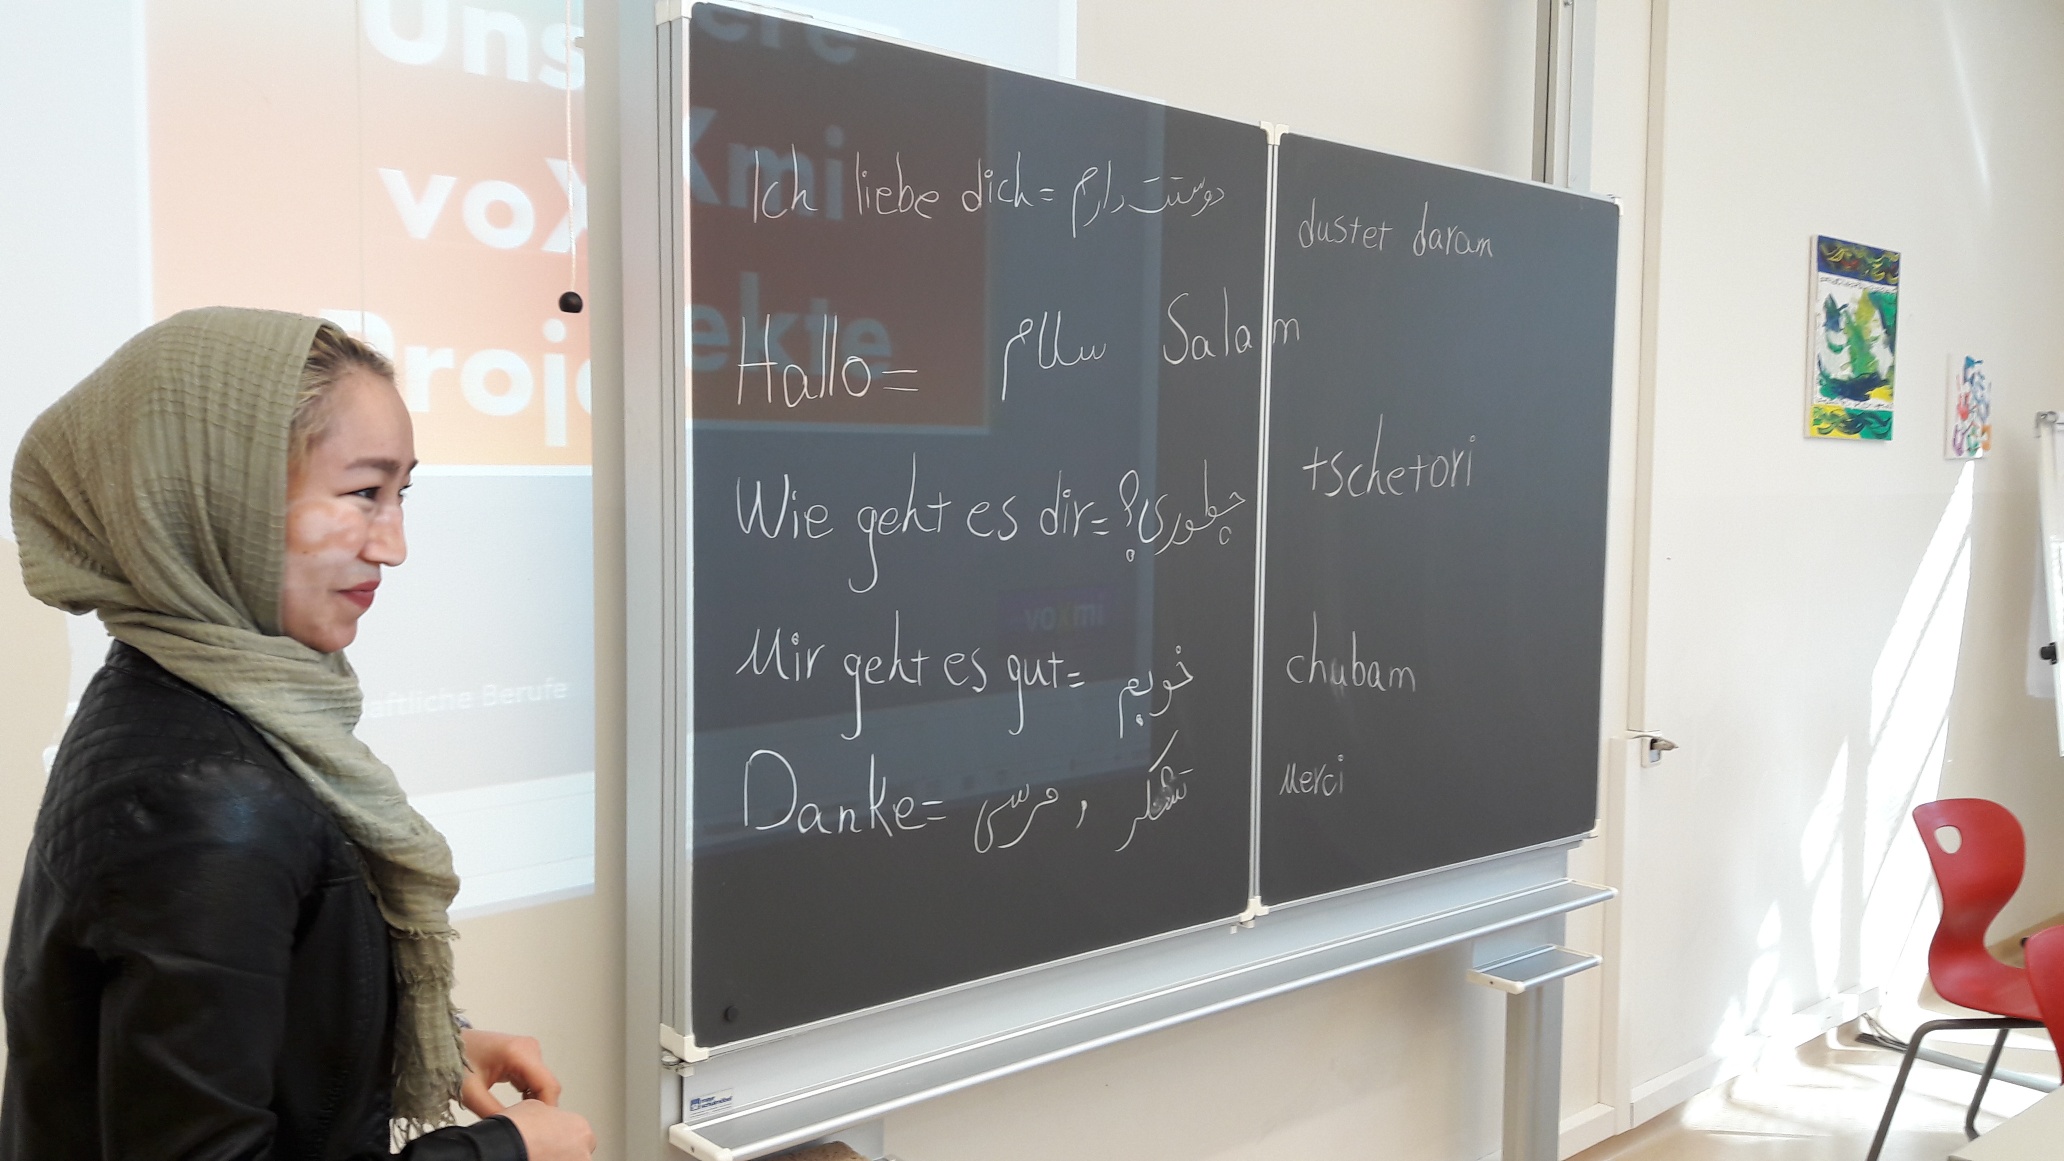 Unsere
voXmi
Projekte
voxmi
aftliche Berufe
Ich liebe dich = دوستت دارم dustet daram
Hallo = سلام Salam
Wie geht es dir = چطوری؟ tschetori
Mir geht es gut = خوبم chubam
Danke = مرسی , تشکر Merci